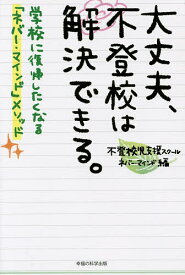 大丈夫、
不登校は
解決できる。
学校に復帰したくなる
「ネバー・マインド」メソッド
不登校児支援スクール
ネバー・マインド 編
幸福の科学出版